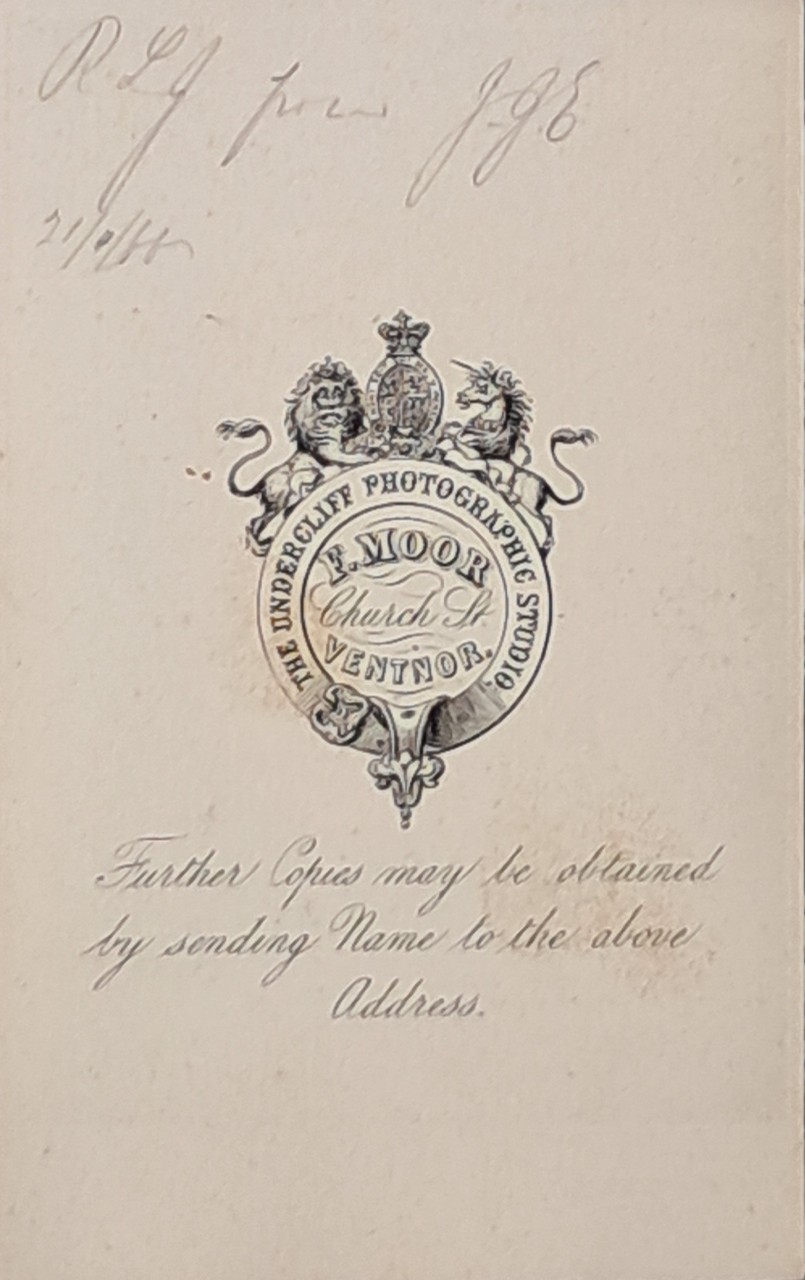 RLJ from J.G.E
THE UNDERCLIFF PHOTOGRAPHIC STUDIO.
F. MOOR
Church St
VENTNOR.
Further Copies may be obtained
by sending Name to the above
Address.